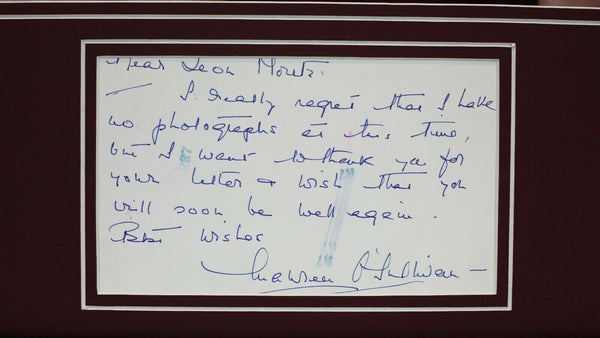 Dear Leon Moritz.
— I really regret that I have
no photographs at this time,
but I want to thank you for
your letter & wish that you
will soon be well again.
Best Wishes
Maureen O'Sullivan —